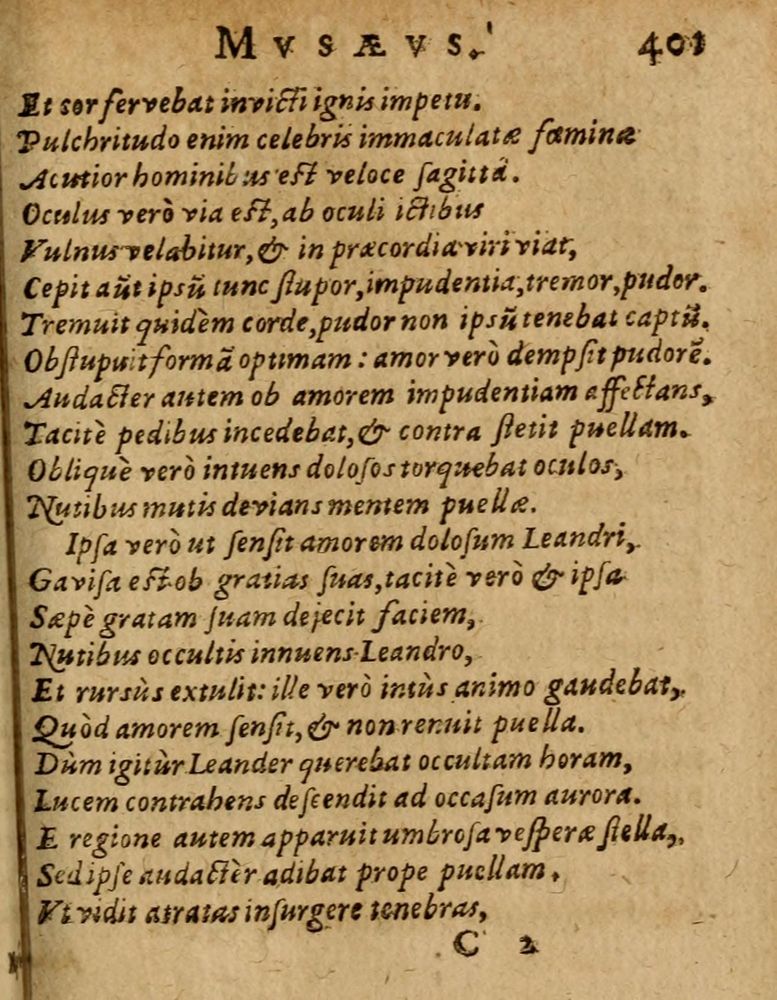 MVSÆVS. 401
Et cor fervebat invicti ignis impetu.
Pulchritudo enim celebris immaculatæ fœminæ
Acutior hominibus est veloce sagittâ.
Oculus verò via est, ab oculi ictibus
Vulnus velabitur, & in præcordia viri viat,
Cepit aũt ipsũ tunc stupor, impudentia, tremor, pudor.
Tremuit quidèm corde, pudor non ipsũ tenebat captũ.
Obstupuit formã optimam : amor verò dempsit pudorẽ.
Audacter autem ob amorem impudentiam affectans,
Tacitè pedibus incedebat, & contra stetit puellam.
Obliquè verò intuens dolosos torquebat oculos,
Nutibus mutis devians mentem puellæ.
Ipsa verò ut sensit amorem dolosum Leandri,
Gavisa est ob gratias suas, tacitè verò & ipsa
Sæpè gratam suam dejecit faciem,
Nutibus occultis innuens Leandro,
Et rursùs extulit: ille verò intùs animo gaudebat,
Quòd amorem sensit, & non renuit puella.
Dùm igitùr Leander querebat occultam horam,
Lucem contrahens descendit ad occasum aurora.
E regione autem apparuit umbrosa vesperæ stella,
Sed ipse audactèr adibat prope puellam.
Vt vidit atratas insurgere tenebras,
C 2